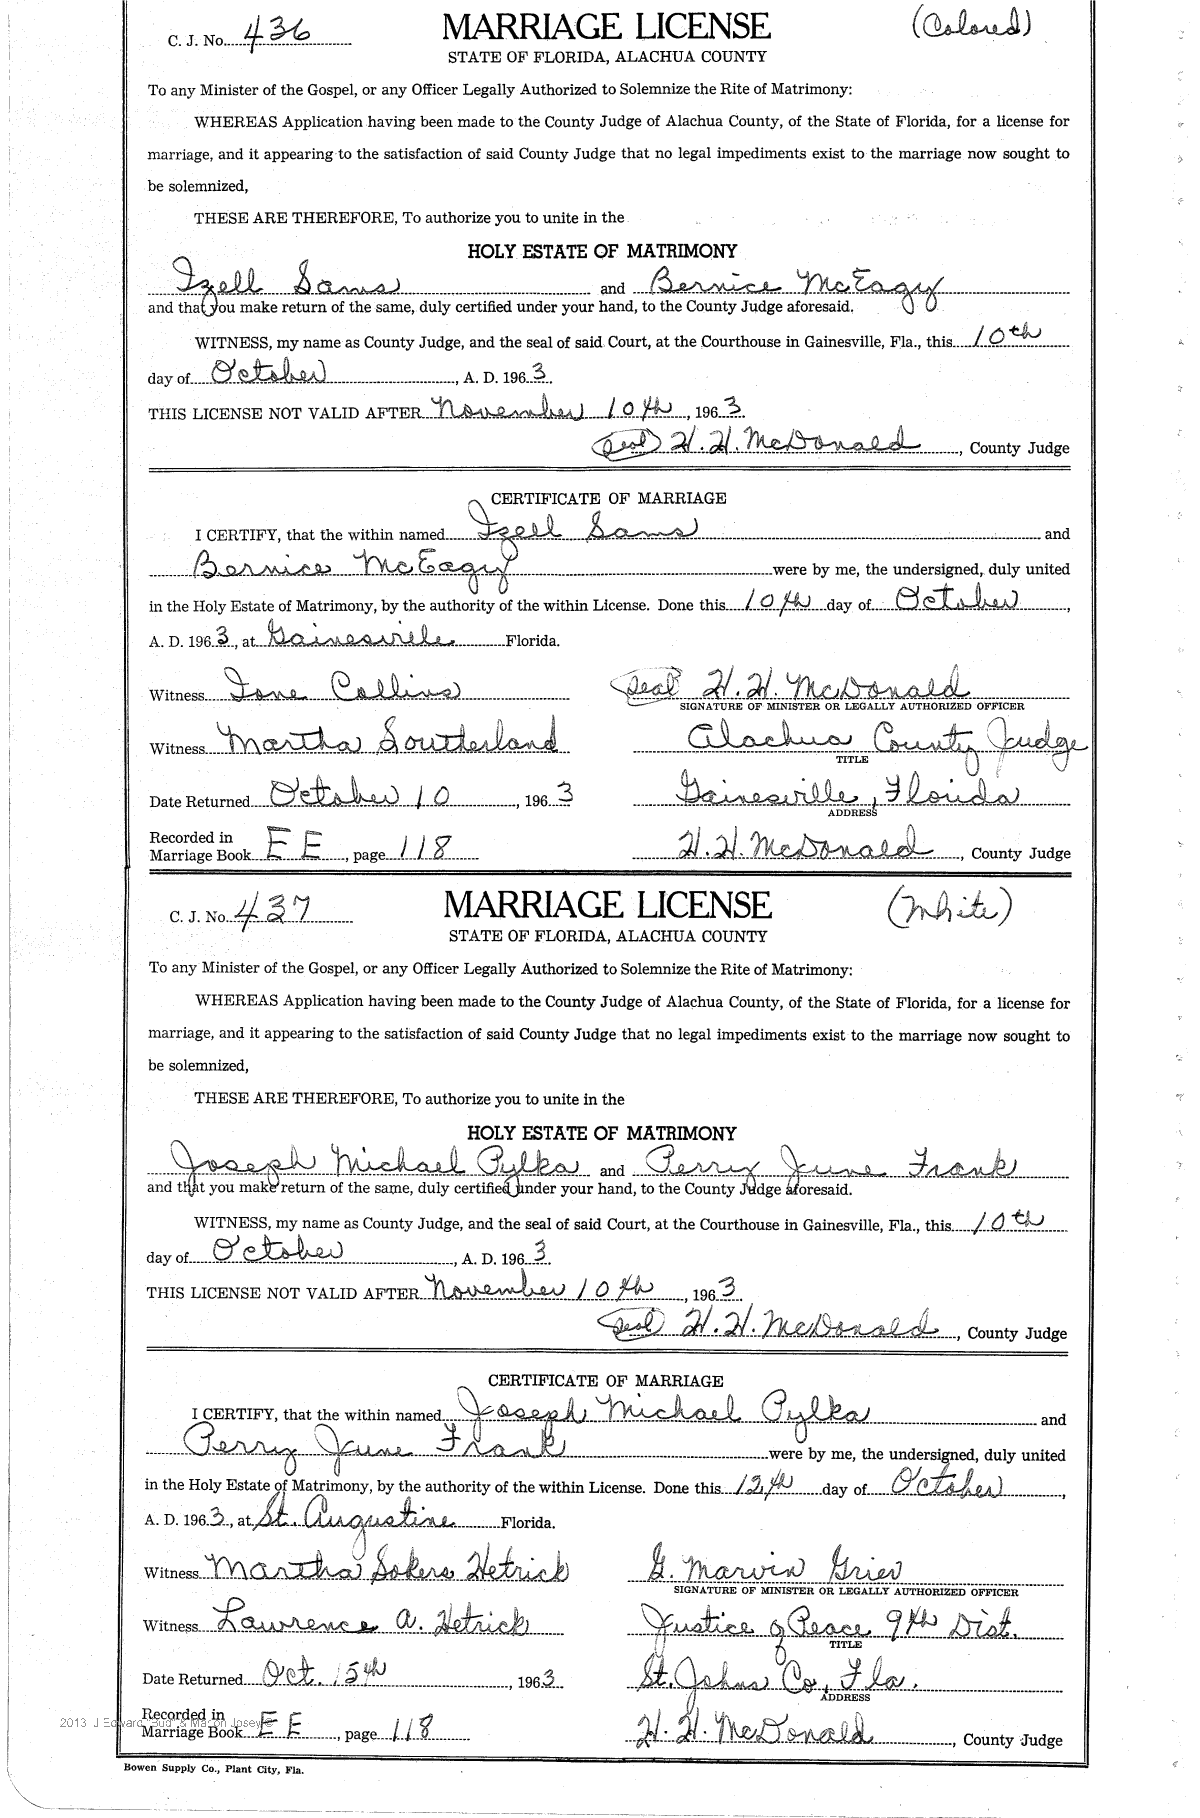 C. J. No. 436 MARRIAGE LICENSE (Colored)
STATE OF FLORIDA, ALACHUA COUNTY
To any Minister of the Gospel, or any Officer Legally Authorized to Solemnize the Rite of Matrimony:
WHEREAS Application having been made to the County Judge of Alachua County, of the State of Florida, for a license for
marriage, and it appearing to the satisfaction of said County Judge that no legal impediments exist to the marriage now sought to
be solemnized,
THESE ARE THEREFORE, To authorize you to unite in the
HOLY ESTATE OF MATRIMONY
Izell Sams and Bernice McEagy
and that you make return of the same, duly certified under your hand, to the County Judge aforesaid.
WITNESS, my name as County Judge, and the seal of said Court, at the Courthouse in Gainesville, Fla., this 10th
day of October, A. D. 1963.
THIS LICENSE NOT VALID AFTER November 10th, 1963.
(Seal) H. H. McDonald, County Judge
CERTIFICATE OF MARRIAGE
I CERTIFY, that the within named Izell Sams and
Bernice McEagy were by me, the undersigned, duly united
in the Holy Estate of Matrimony, by the authority of the within License. Done this 10th day of October,
A. D. 1963, at Gainesville Florida.
Witness Ione Collins (Seal) H. H. McDonald
SIGNATURE OF MINISTER OR LEGALLY AUTHORIZED OFFICER
Witness Martha Soutterland Alachua County Judge
TITLE
Date Returned October 10, 1963 Gainesville, Florida
ADDRESS
Recorded in
Marriage Book EE, page 118 H. H. McDonald, County Judge
C. J. No. 437 MARRIAGE LICENSE (White)
STATE OF FLORIDA, ALACHUA COUNTY
To any Minister of the Gospel, or any Officer Legally Authorized to Solemnize the Rite of Matrimony:
WHEREAS Application having been made to the County Judge of Alachua County, of the State of Florida, for a license for
marriage, and it appearing to the satisfaction of said County Judge that no legal impediments exist to the marriage now sought to
be solemnized,
THESE ARE THEREFORE, To authorize you to unite in the
HOLY ESTATE OF MATRIMONY
Joseph Michael Pylka and Perry June Frank
and that you make return of the same, duly certified under your hand, to the County Judge aforesaid.
WITNESS, my name as County Judge, and the seal of said Court, at the Courthouse in Gainesville, Fla., this 10th
day of October, A. D. 1963.
THIS LICENSE NOT VALID AFTER November 10th, 1963.
(Seal) H. H. McDonald, County Judge
CERTIFICATE OF MARRIAGE
I CERTIFY, that the within named Joseph Michael Pylka and
Perry June Frank were by me, the undersigned, duly united
in the Holy Estate of Matrimony, by the authority of the within License. Done this 12th day of October,
A. D. 1963, at St. Augustine Florida.
Witness Martha Sokers Hetrick G. Marvin Grier
SIGNATURE OF MINISTER OR LEGALLY AUTHORIZED OFFICER
Witness Lawrence A. Hetrick Justice of Peace 9th Dist.
TITLE
Date Returned Oct. 15th, 1963 St. Johns Co, Fla.
ADDRESS
Recorded in
2013 J Edward "Bud" & Macon Josey ©
Marriage Book EE, page 118 H. H. McDonald, County Judge
Bowen Supply Co., Plant City, Fla.